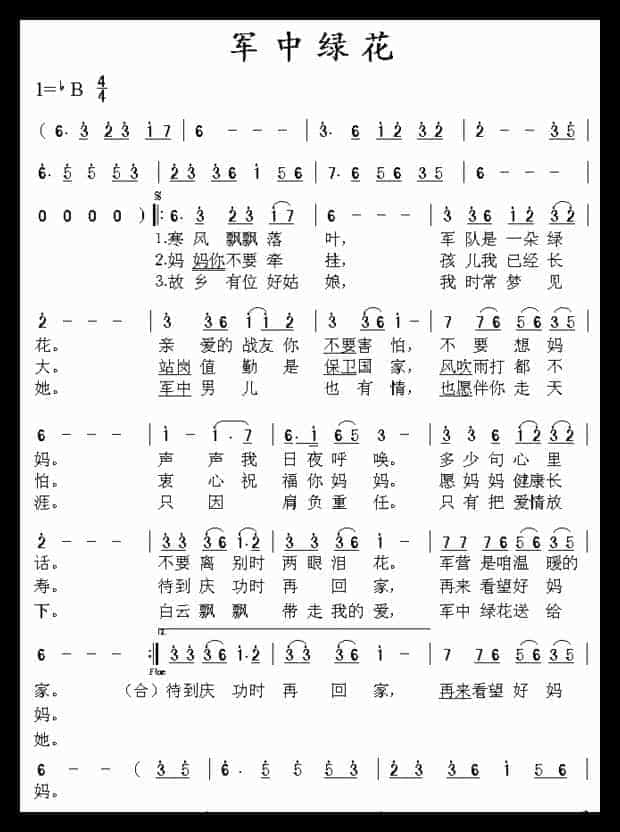 军中绿花
1=♭B 4/4
( 6. 3 2 3 1 7 | 6 - - - | 3. 6 1 2 3 2 | 2 - - 3 5 |
6. 5 5 5 3 | 2 3 3 6 1 5 6 | 7. 6 5 6 3 5 | 6 - - - |
0 0 0 0 ) ‖: 6. 3 2 3 1 7 | 6 - - - | 3 3 6 1 2 3 2 |
1.寒 风 飘飘 落 叶， 军 队是 一朵 绿
2.妈 妈你 不要 牵 挂， 孩 儿我 已经 长
3.故 乡 有位 好姑 娘， 我 时常 梦 见
2 - - - | 3 3 6 1 2 1 | 3 3 6 1 - | 7 7 6 5 6 3 5 |
花。 亲 爱的 战友 你 不要害 怕， 不 要 想 妈
大。 站岗 值 勤 是 保卫国 家， 风吹雨打 都 不
她。 军中 男 儿 也 有 情， 也愿伴你 走 天
6 - - - | 1 - 1. 7 | 6. 1 6 5 3 - | 3 3 6 1 2 3 2 |
妈。 声 声 我 日夜呼 唤。 多少句 心 里
怕。 衷 心 祝 福你 妈 妈。 愿 妈 妈 健康长
涯。 只 因 肩 负重 任。 只 有 把 爱情放
2 - - - | 3 3 3 6 1. 2 | 3 3 3 6 1 - | 7 7 7 6 5 6 3 5 |
话。 不要 离 别时 两 眼泪 花。 军营 是咱温 暖的
寿。 待到 庆 功时 再 回 家， 再来 看望 好 妈
下。 白云 飘飘 带 走我的 爱， 军中 绿花送 给
6 - - - :‖ 3 3 3 6 1. 2 | 3 3 3 6 1 - | 7 7 6 5 6 3 5 |
家。 （合）待到庆 功时 再 回 家， 再来看望 好 妈
妈。
她。
6 - - ( 3 5 | 6. 5 5 5 3 | 2 3 3 6 1 5 6 |
妈。